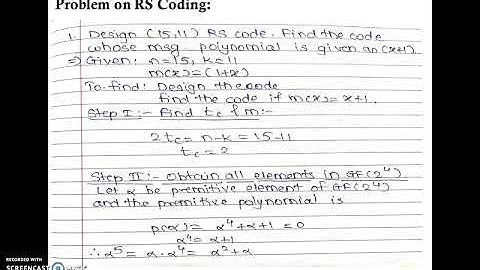 Problem on RS Coding:
1. Design (15,11) RS code. Find the code
whose msg. polynomial is given an (x+1).
⇒ Given: n=15, k=11
m(x)=(1+x)
To find: Design the code
find the code if m(x)=x+1.
Step I :- Find tc & m:-
2tc = n-k = 15-11
tc = 2
Step II :- Obtain all elements in GF(2⁴)
Let α be premitive element of GF(2⁴)
and the premitive polynomial is
p(α) = α⁴+α+1 = 0
α⁴ = α+1
∴ α⁵ = α·α⁴ = α²+α
RECORDED WITH
SCREENCAST